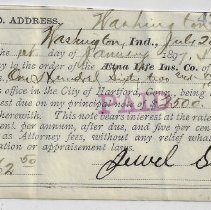 O. ADDRESS,
Washington, Ind., July 2
day of January 1897
to the order of the Etna Life Ins. Co.
One Hundred Sixty two and
office in the City of Hartford, Conn., being
est due on my principal note $3500.
hereafter. This note bears interest at the rate
cent. per annum, after due, and five per cent
as Attorney fees, without any relief what
ation or appraisement laws.
PAID
Jewel
2 50